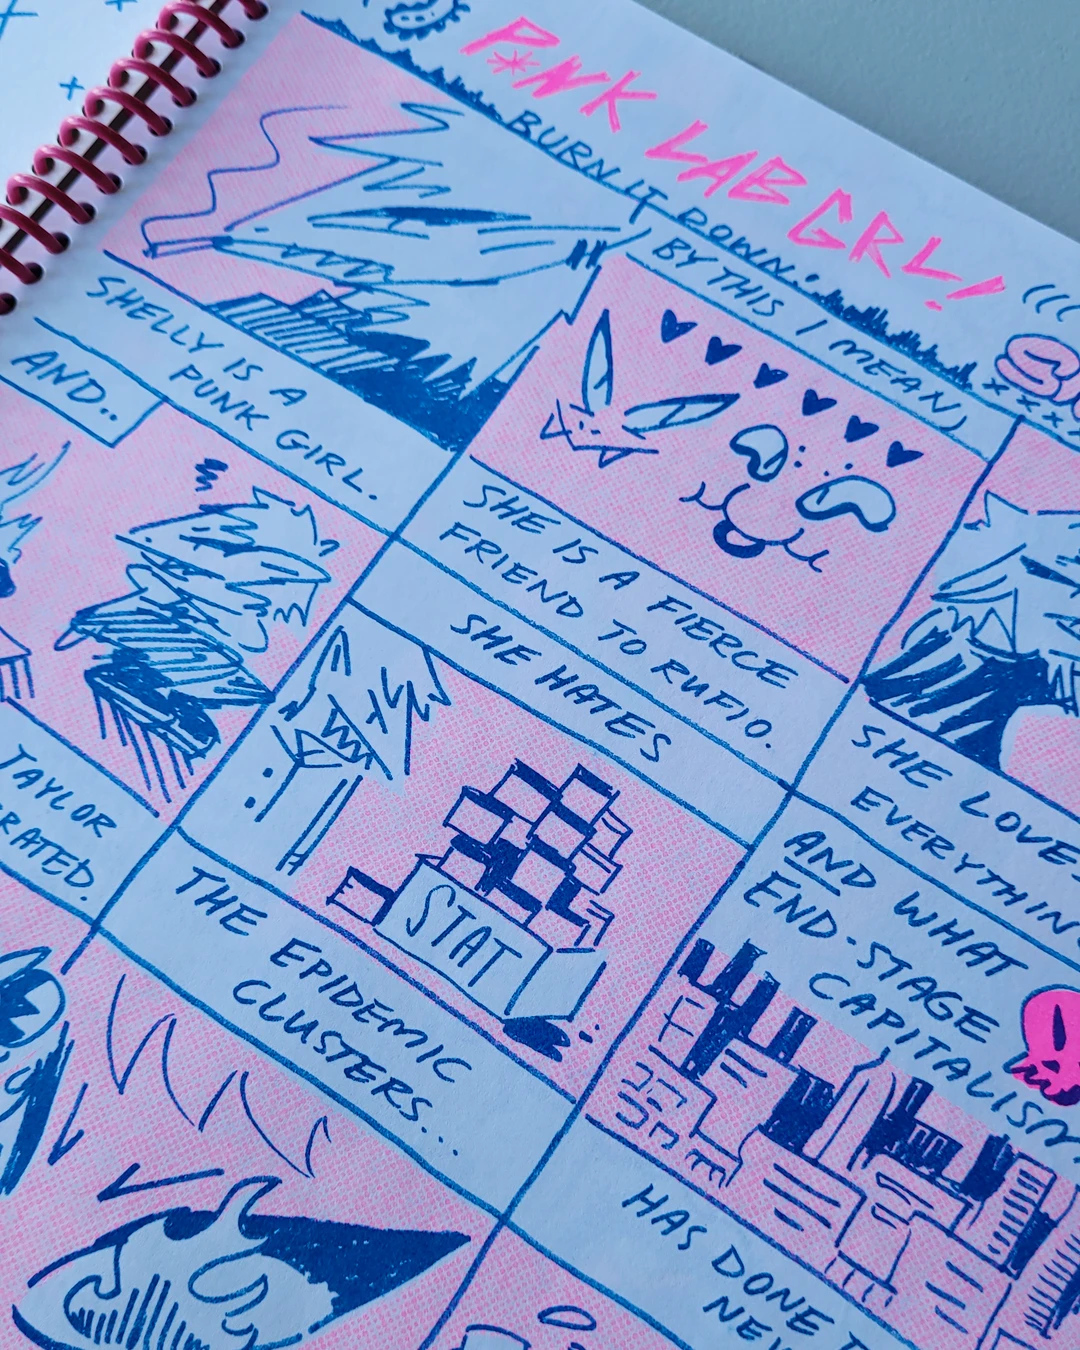 P*NK LAB GRL!
BURN IT DOWN:
(BY THIS I MEAN)
SHELLY IS A
PUNK GIRL.
SHE IS A FIERCE
FRIEND TO RUFIO.
SHE LOVES
EVERYTHING
AND..
TAYLOR
SHE HATES
STAT
THE EPIDEMIC
CLUSTERS..
AND WHAT
END-STAGE
CAPITALISM
HAS DONE